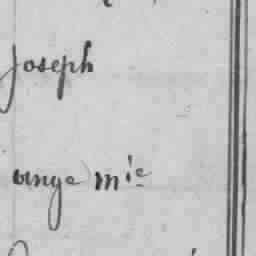 Joseph
ange m^ie